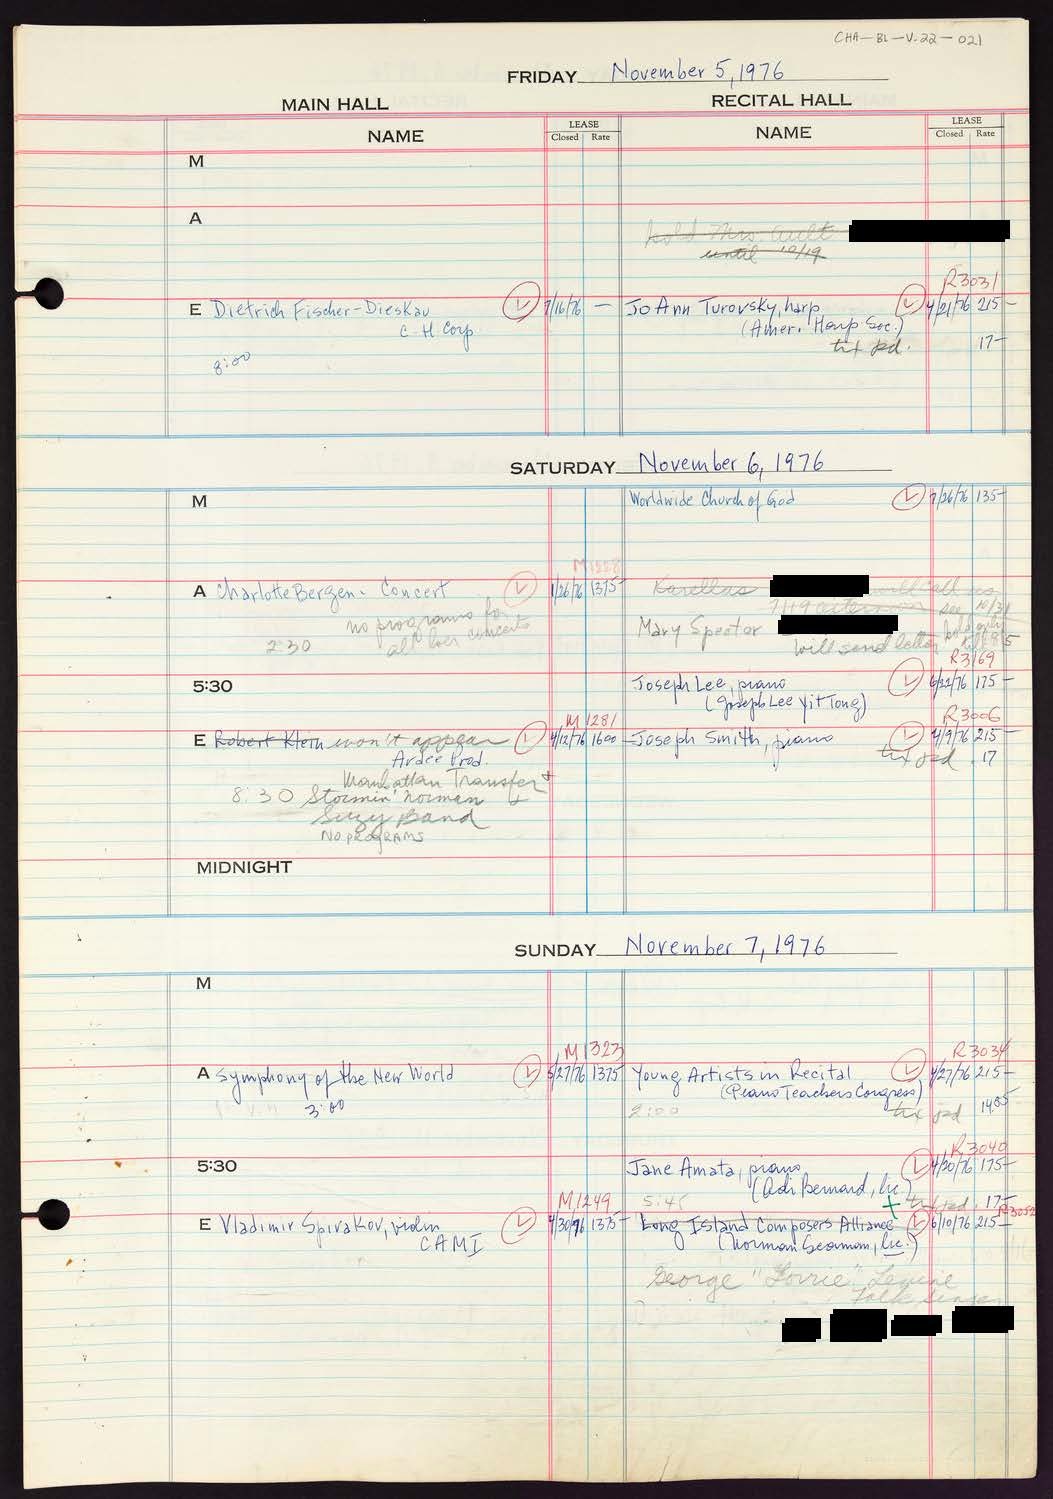 CHA-BL-V-22-021
FRIDAY November 5, 1976
MAIN HALL
RECITAL HALL
NAME
LEASE
Closed Rate
NAME
LEASE
Closed Rate
M
A
hold Mrs. Ault
until 10/19
R3031
E Dietrich Fischer-Dieskau 7/16/76 —
C H Corp.
8:00
Jo Ann Turovsky, harp 4/21/76 215 —
(Amer. Harp Soc.)
tix pd. 17 —
SATURDAY November 6, 1976
M
Worldwide Church of God 7/26/76 135 —
M1228
A Charlotte Bergen - Concert 1/26/76 1375 —
no programs for
all her concerts
2:30
Karellas will call us
7/19 afternoon see 10/31
Mary Spector hold only
will send letter
R3169
5:30
Joseph Lee, piano 6/22/76 175 —
(Joseph Lee Yit Tong)
M1281
R3006
E Robert Klein won't appear 4/12/76 1600 —
Ardee Prod.
Manhattan Transfer +
8:30 Stormin' Norman +
Suzy Band
NO PROGRAMS
Joseph Smith, piano 4/9/76 215 —
tix pd. 17
MIDNIGHT
SUNDAY November 7, 1976
M
M1323
R3034
A Symphony of the New World 5/27/76 1375
3:00
Young Artists in Recital 4/27/76 215 —
(Piano Teachers Congress)
2:00 tix pd 1485
R3040
5:30
Jane Amata, piano 4/20/76 175 —
(Adi Bernard, lic.)
5:45 tix pd. 17 —
M1249
R3052
E Vladimir Spivakov, violin 4/30/76 1375 —
CAMI
Long Island Composers Alliance 6/10/76 215 —
(Norman Seaman, lic.)
George "Lorrie" Levine
Folk Singer